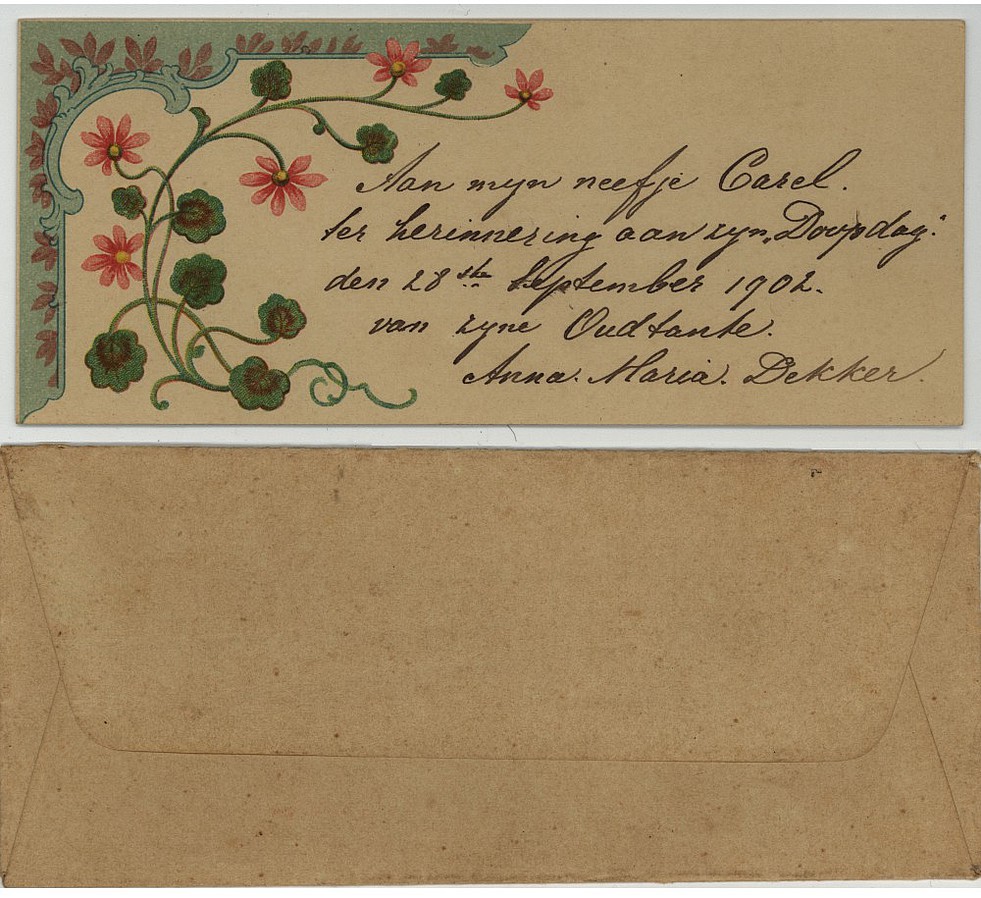 Aan myn neefje Carel.
ter herinnering aan zyn „Doopdag.”
den 28ste September 1902.
van zyne Oudtante.
Anna. Maria. Dekker.